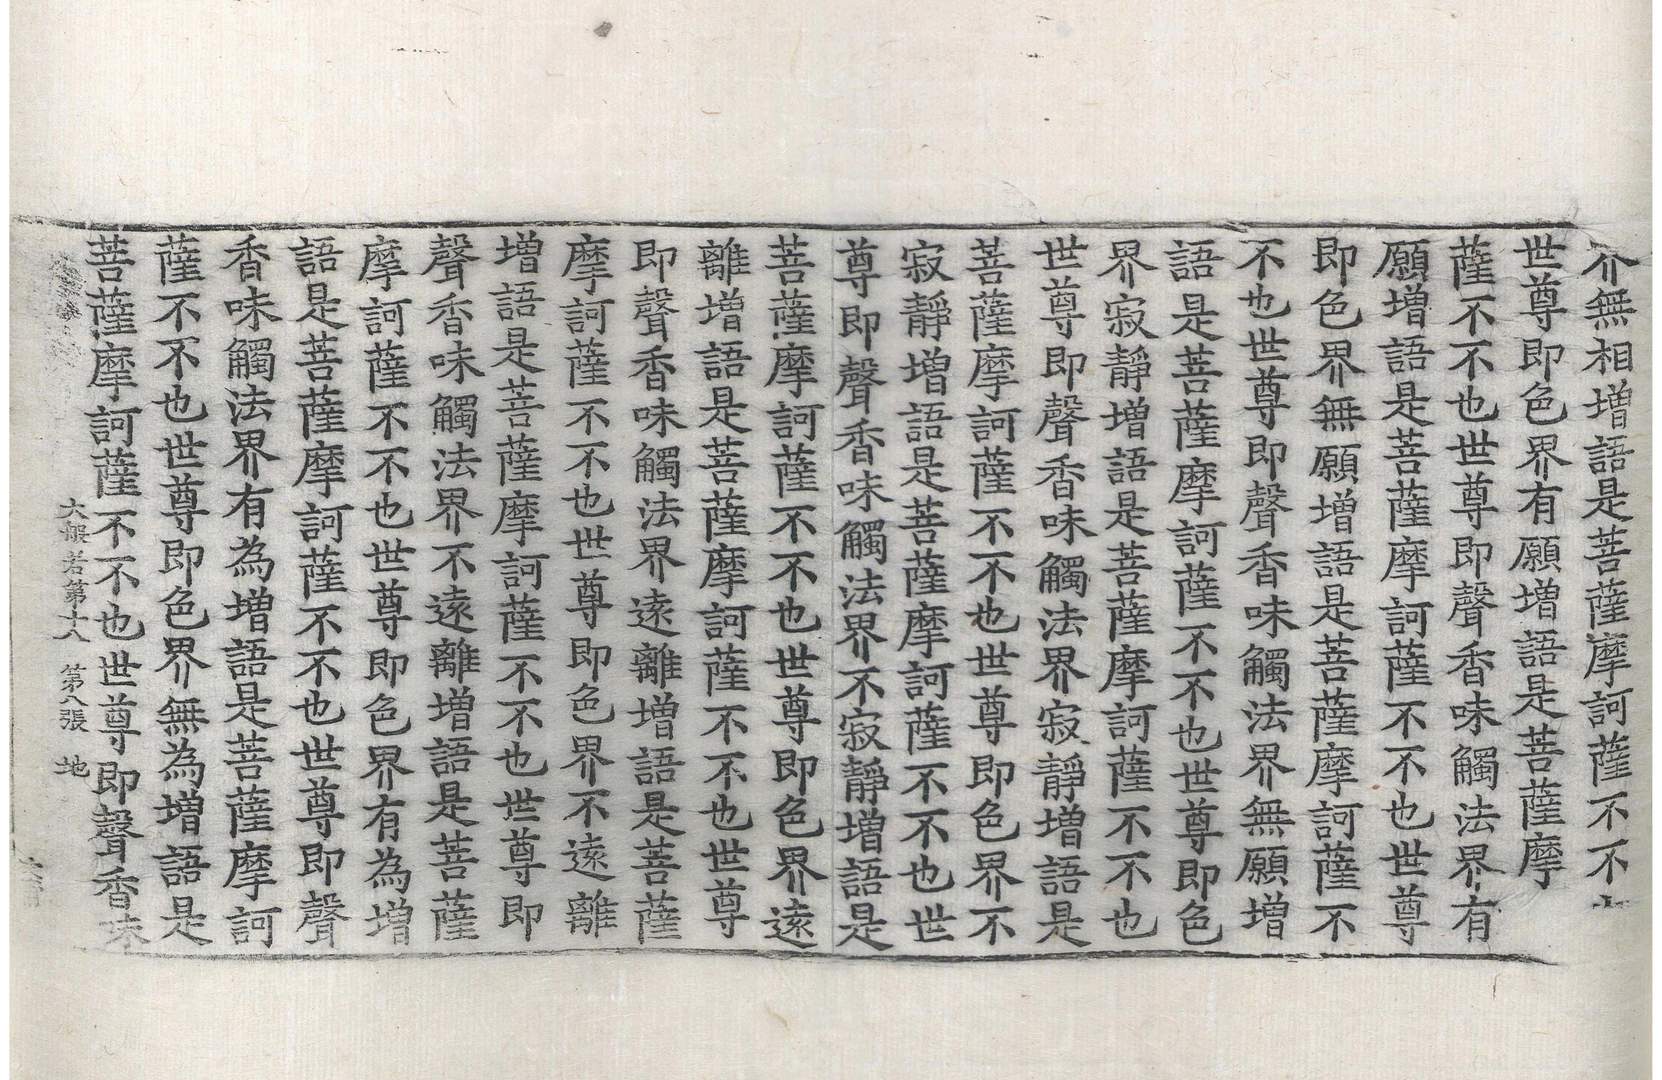 界無相增語是菩薩摩訶薩不不也
世尊即色界有願增語是菩薩摩
薩不不也世尊即聲香味觸法界有
願增語是菩薩摩訶薩不不也世尊
即色界無願增語是菩薩摩訶薩不
不也世尊即聲香味觸法界無願增
語是菩薩摩訶薩不不也世尊即色
界寂靜增語是菩薩摩訶薩不不也
世尊即聲香味觸法界寂靜增語是
菩薩摩訶薩不不也世尊即色界不
寂靜增語是菩薩摩訶薩不不也世
尊即聲香味觸法界不寂靜增語是
菩薩摩訶薩不不也世尊即色界遠
離增語是菩薩摩訶薩不不也世尊
即聲香味觸法界遠離增語是菩薩
摩訶薩不不也世尊即色界不遠離
增語是菩薩摩訶薩不不也世尊即
聲香味觸法界不遠離增語是菩薩
摩訶薩不不也世尊即色界有為增
語是菩薩摩訶薩不不也世尊即聲
香味觸法界有為增語是菩薩摩訶
薩不不也世尊即色界無為增語是
菩薩摩訶薩不不也世尊即聲香味
大般若第十八 第八張 地